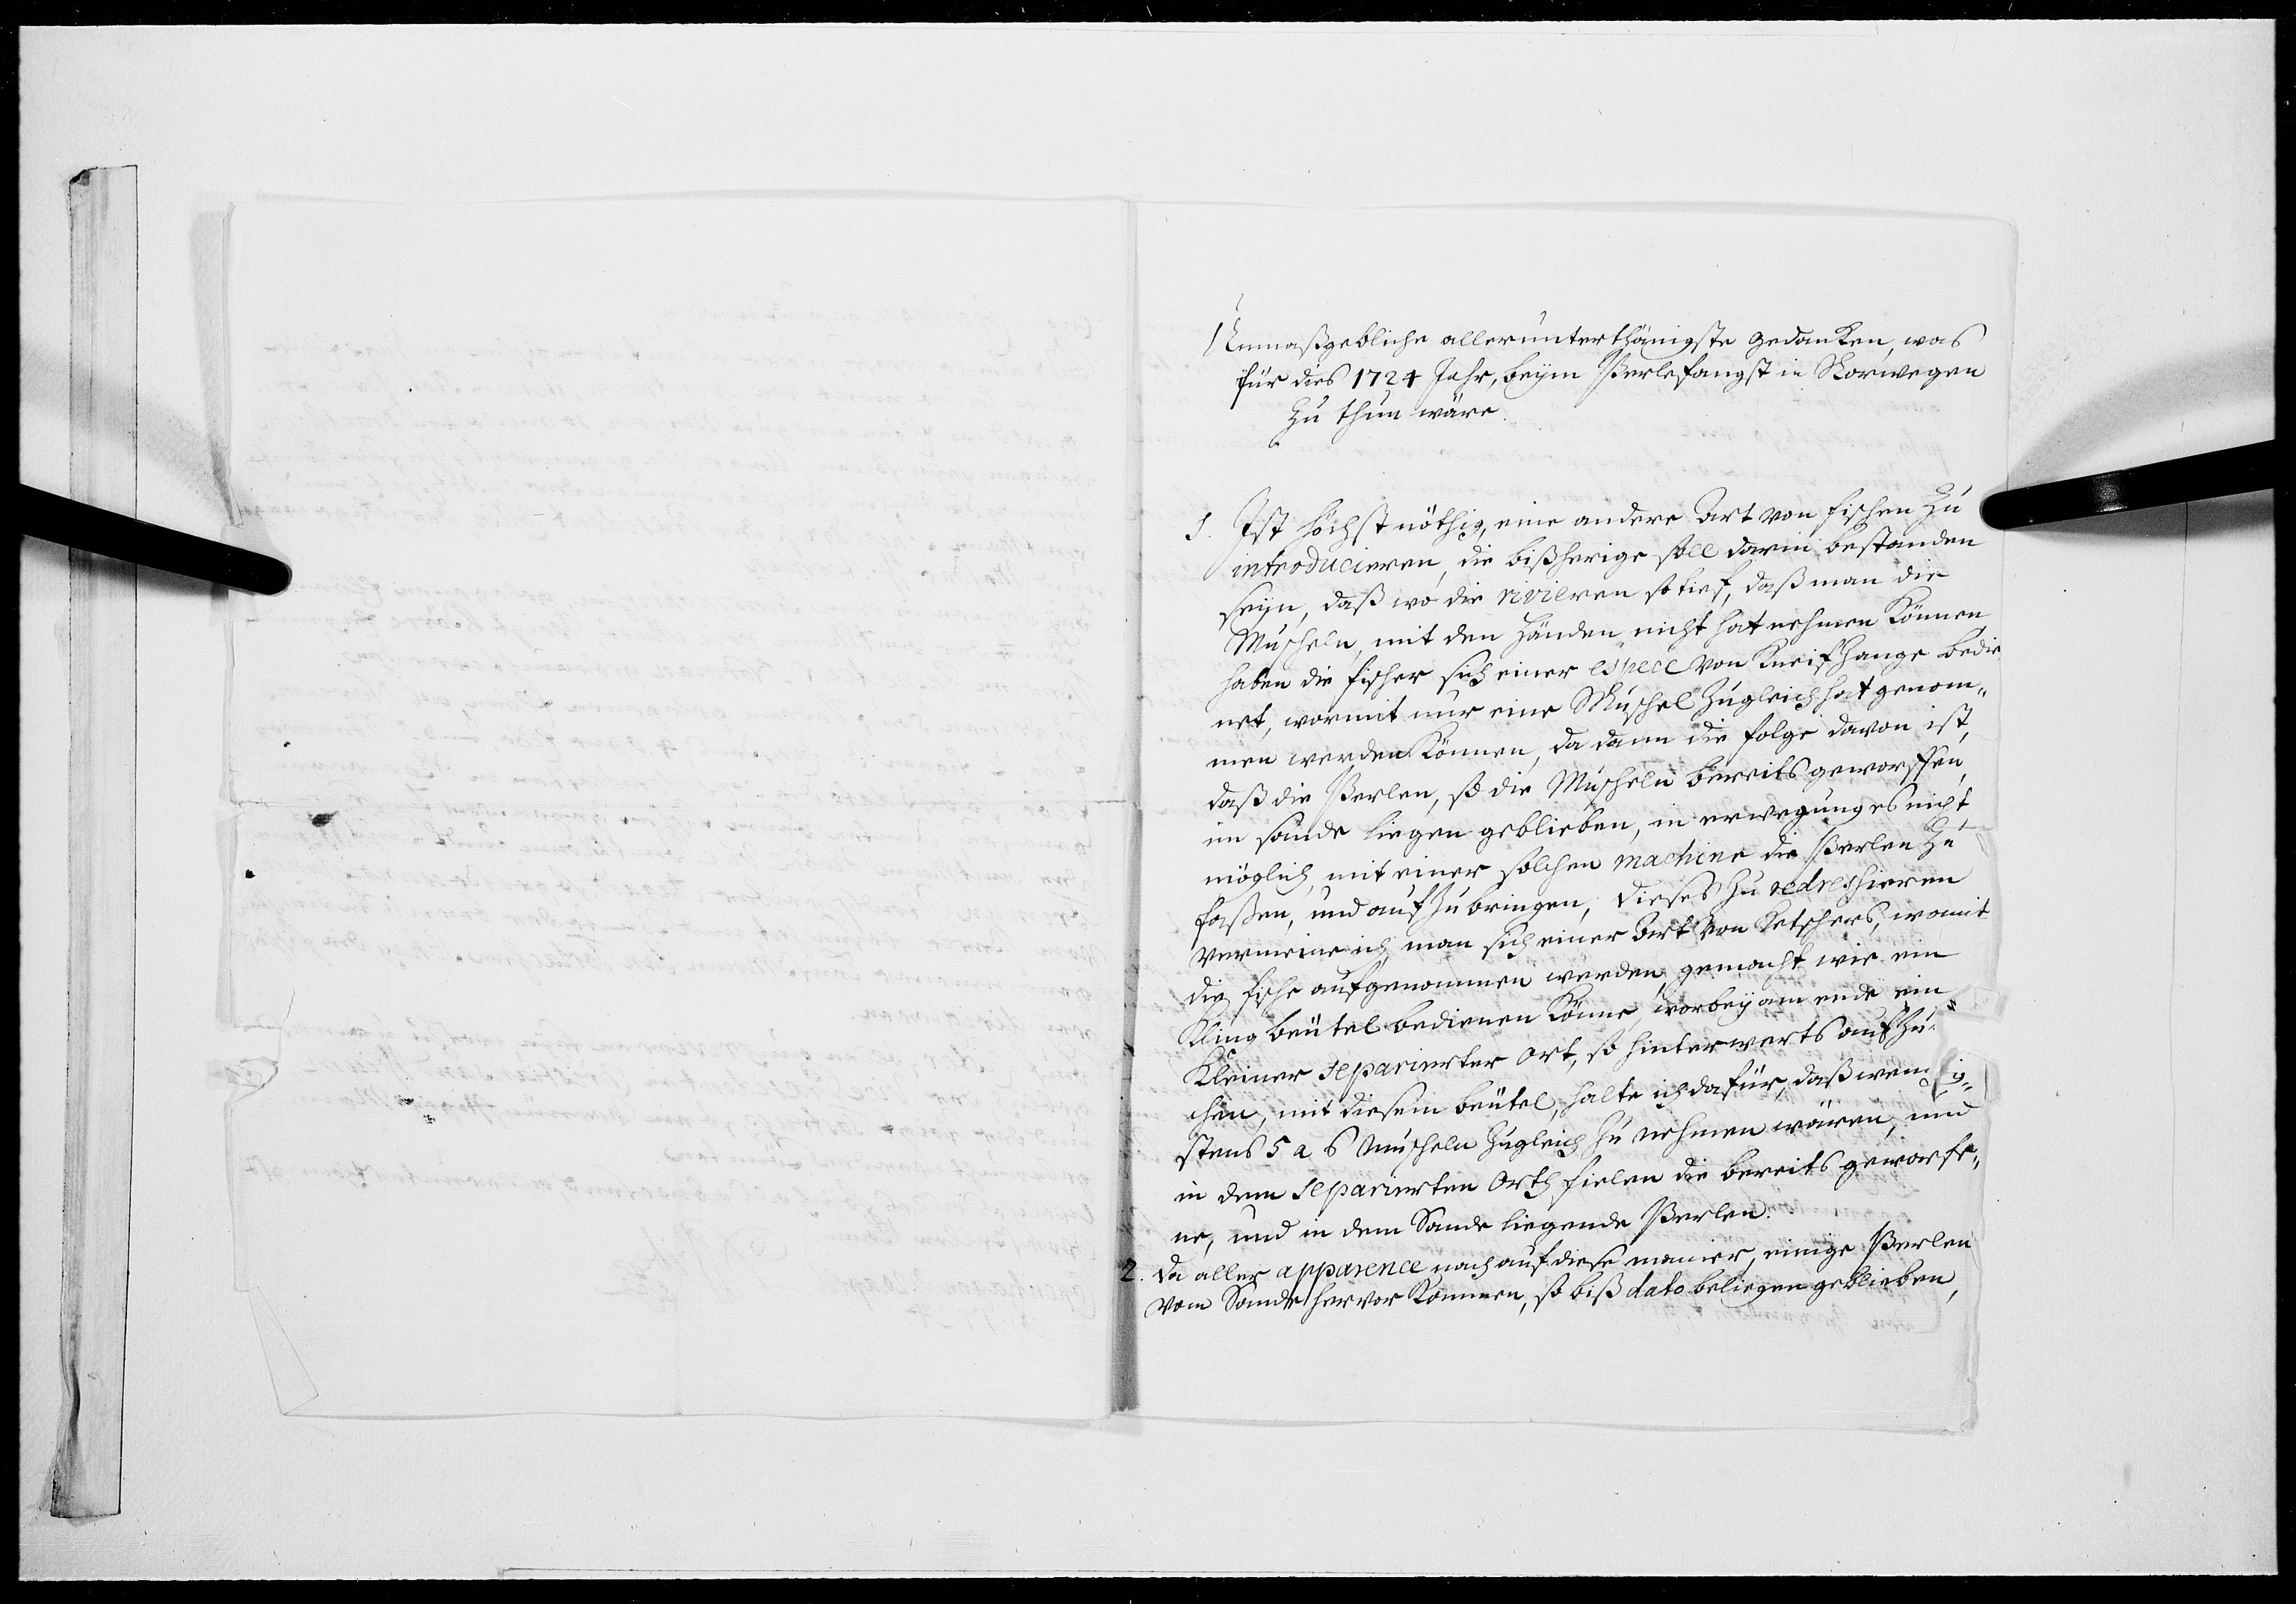 Unmaßgebliche allerunterthänigste gedancken, was
für dies 1724 Jahr, beÿm Perlefangst in Norwegen
zu thun wäre.
1. Ist höchst nöthig, eine andere Art von fischen zu
introducieren, die bißherige soll darin bestanden
seÿn, daß wo die rivieren so tief, daß man die
Muscheln, mit den Händen nicht hat nehmen können
haben die fischer sich einer espece von Kneifzange bedie
net, wormit nur eine Muschel zugleich hat genom„
men werden können, da dann die folge davon ist,
daß die Perlen, so die Muscheln bereits geworffen,
im sande liegen geblieben, in erwegung es nicht
möglich, mit einer solchen machine die Perlen zu
faßen, und aufzubringen, dieses zu redreshieren
vermeine ich, man sich einer Art von Ketschers, womit
die fische aufgenommen werden, gemacht wie ein
Kling beütel bedienen könne, worbeÿ am ende ein
kleiner separierter ort, so hinterwerts aufzu„
chen, mit diesem beütel, halte ich dafür, daß wenig„
stens 5 a 6 Muscheln zugleich zu nehmen wären, und
in dem separierten Orth fielen die bereits geworfe„
ne, und in dem Sande liegende Perlen.
2. Da aller apparence nach auf diese manier, einige Perlen
vom Sande hervor kommen, so biß dato beliegen geblieben,